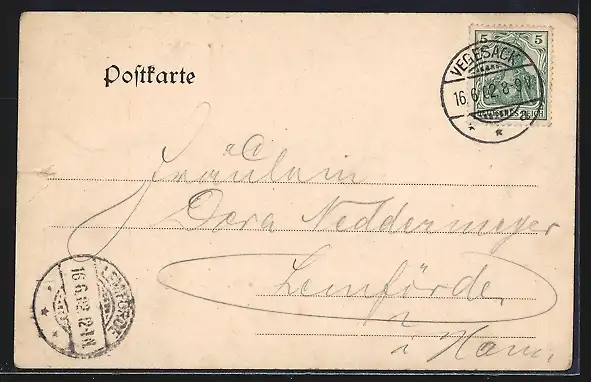 Postkarte
5 5
DEUTSCHES REICH
VEGESACK
16.6.02.8-9V.
a
Fräulein
Dora Neddermeyer
Lemförde
i Hann.
LEMFÖRDE
16.6.02.12-1N.